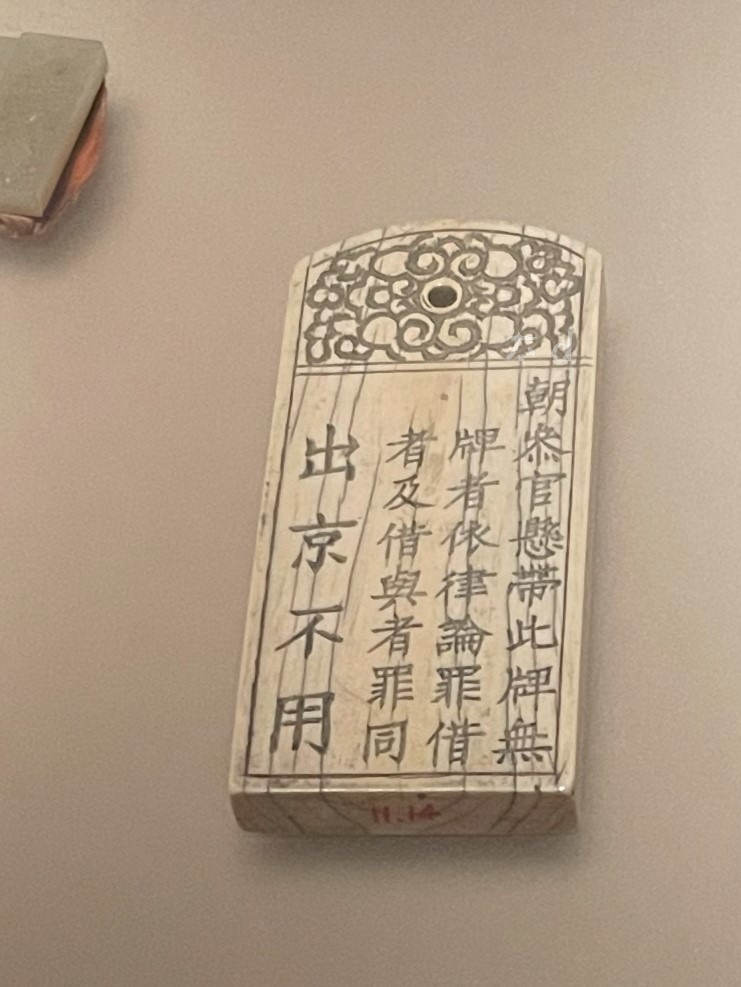 朝叅官懸帶此牌無
牌者依律論罪借
者及借與者罪同
出京不用
11.14